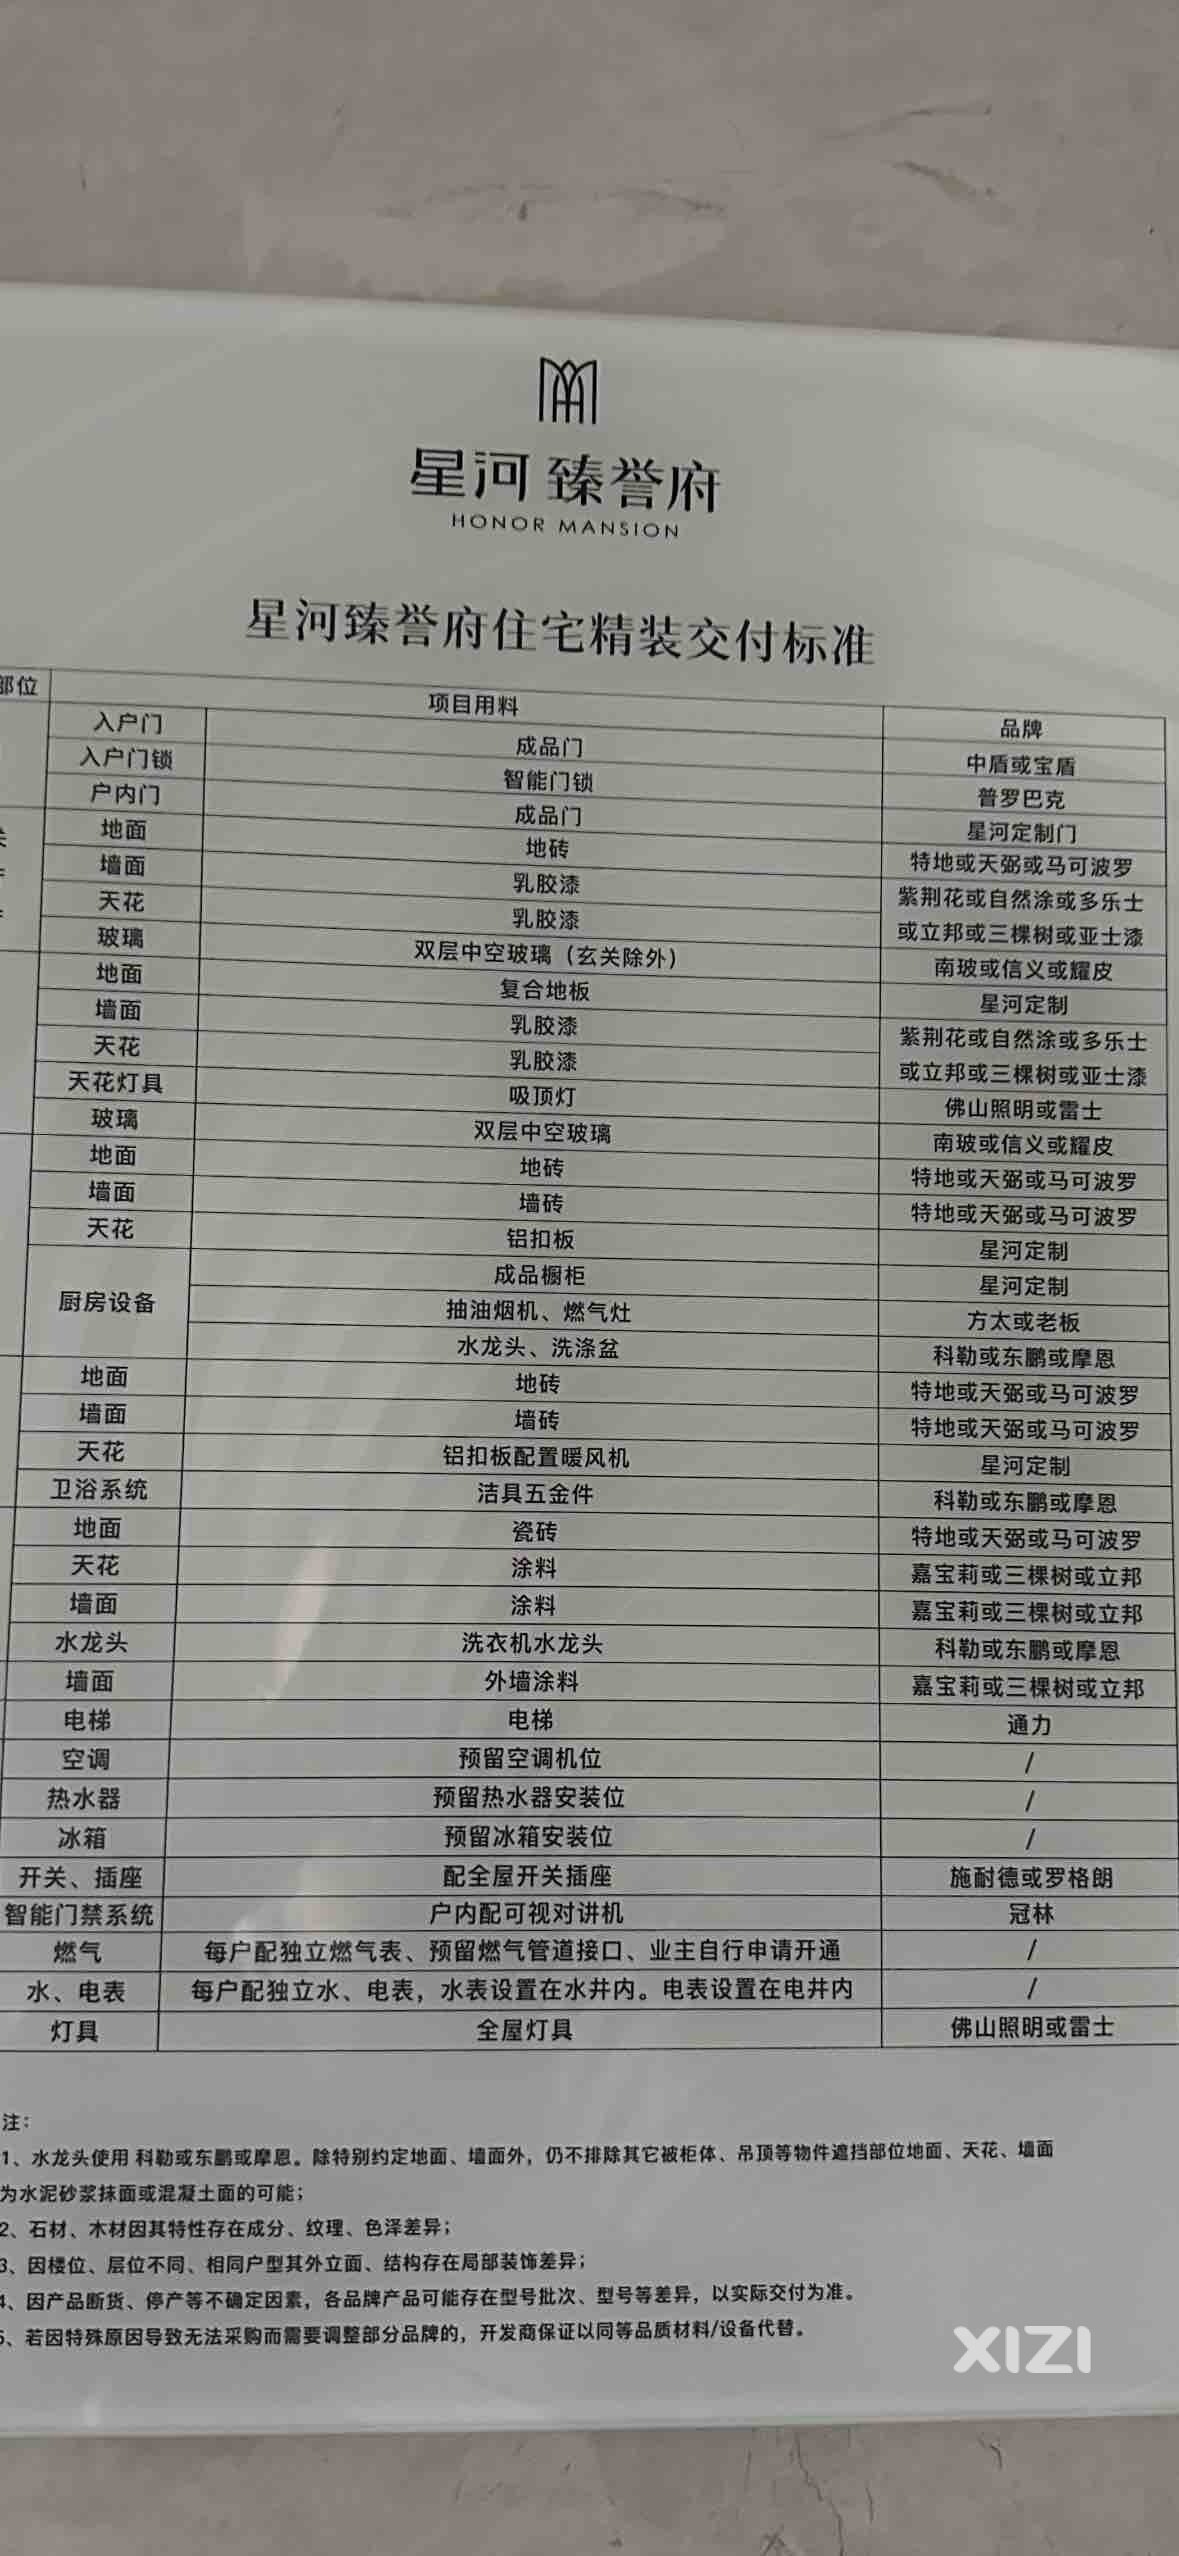 星河 臻誉府
HONOR MANSION
星河臻誉府住宅精装交付标准
部位 项目用料 品牌
入户门 成品门 中盾或宝盾
入户门锁 智能门锁 普罗巴克
户内门 成品门 星河定制门
地面 地砖 特地或天弼或马可波罗
墙面 乳胶漆 紫荆花或自然涂或多乐士
天花 乳胶漆 或立邦或三棵树或亚士漆
玻璃 双层中空玻璃（玄关除外） 南玻或信义或耀皮
地面 复合地板 星河定制
墙面 乳胶漆 紫荆花或自然涂或多乐士
天花 乳胶漆 或立邦或三棵树或亚士漆
天花灯具 吸顶灯 佛山照明或雷士
玻璃 双层中空玻璃 南玻或信义或耀皮
地面 地砖 特地或天弼或马可波罗
墙面 墙砖 特地或天弼或马可波罗
天花 铝扣板 星河定制
厨房设备 成品橱柜 星河定制
抽油烟机、燃气灶 方太或老板
水龙头、洗涤盆 科勒或东鹏或摩恩
地面 地砖 特地或天弼或马可波罗
墙面 墙砖 特地或天弼或马可波罗
天花 铝扣板配置暖风机 星河定制
卫浴系统 洁具五金件 科勒或东鹏或摩恩
地面 瓷砖 特地或天弼或马可波罗
天花 涂料 嘉宝莉或三棵树或立邦
墙面 涂料 嘉宝莉或三棵树或立邦
水龙头 洗衣机水龙头 科勒或东鹏或摩恩
墙面 外墙涂料 嘉宝莉或三棵树或立邦
电梯 电梯 通力
空调 预留空调机位 /
热水器 预留热水器安装位 /
冰箱 预留冰箱安装位 /
开关、插座 配全屋开关插座 施耐德或罗格朗
智能门禁系统 户内配可视对讲机 冠林
燃气 每户配独立燃气表、预留燃气管道接口、业主自行申请开通 /
水、电表 每户配独立水、电表，水表设置在水井内。电表设置在电井内 /
灯具 全屋灯具 佛山照明或雷士
注：
1、水龙头使用 科勒或东鹏或摩恩。除特别约定地面、墙面外，仍不排除其它被柜体、吊顶等物件遮挡部位地面、天花、墙面
为水泥砂浆抹面或混凝土面的可能；
2、石材、木材因其特性存在成分、纹理、色泽差异；
3、因楼位、层位不同、相同户型其外立面、结构存在局部装饰差异；
4、因产品断货、停产等不确定因素，各品牌产品可能存在型号批次、型号等差异，以实际交付为准。
5、若因特殊原因导致无法采购而需要调整部分品牌的，开发商保证以同等品质材料/设备代替。
XIZI